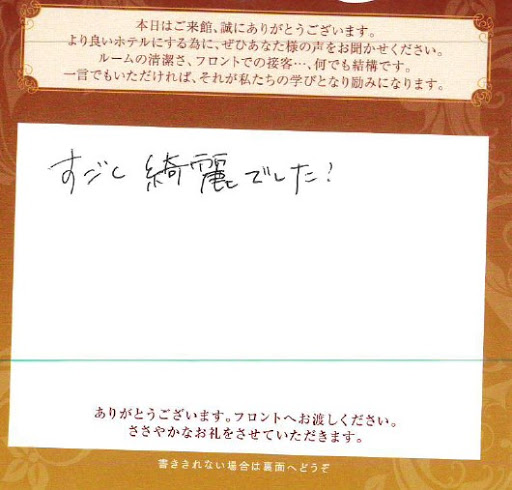 本日はご来館、誠にありがとうございます。
より良いホテルにする為に、ぜひあなた様の声をお聞かせください。
ルームの清潔さ、フロントでの接客…、何でも結構です。
一言でもいただければ、それが私たちの学びとなり励みになります。
すごし 綺麗でした!
ありがとうございます。フロントへお渡しください。
ささやかなお礼をさせていただきます。
書ききれない場合は裏面へどうぞ